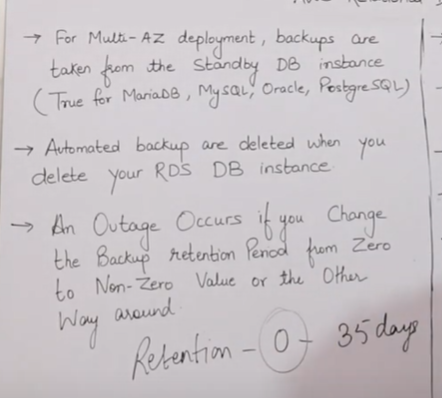 → For Multi-AZ deployment, backups are
taken from the Standby DB instance
(True for MariaDB, MySQL, Oracle, PostgreSQL)
→ Automated backup are deleted when you
delete your RDS DB instance
→ An Outage Occurs if you Change
the Backup retention Period from Zero
to Non-Zero Value or the Other
Way around.
Retention - 0 - 35 days